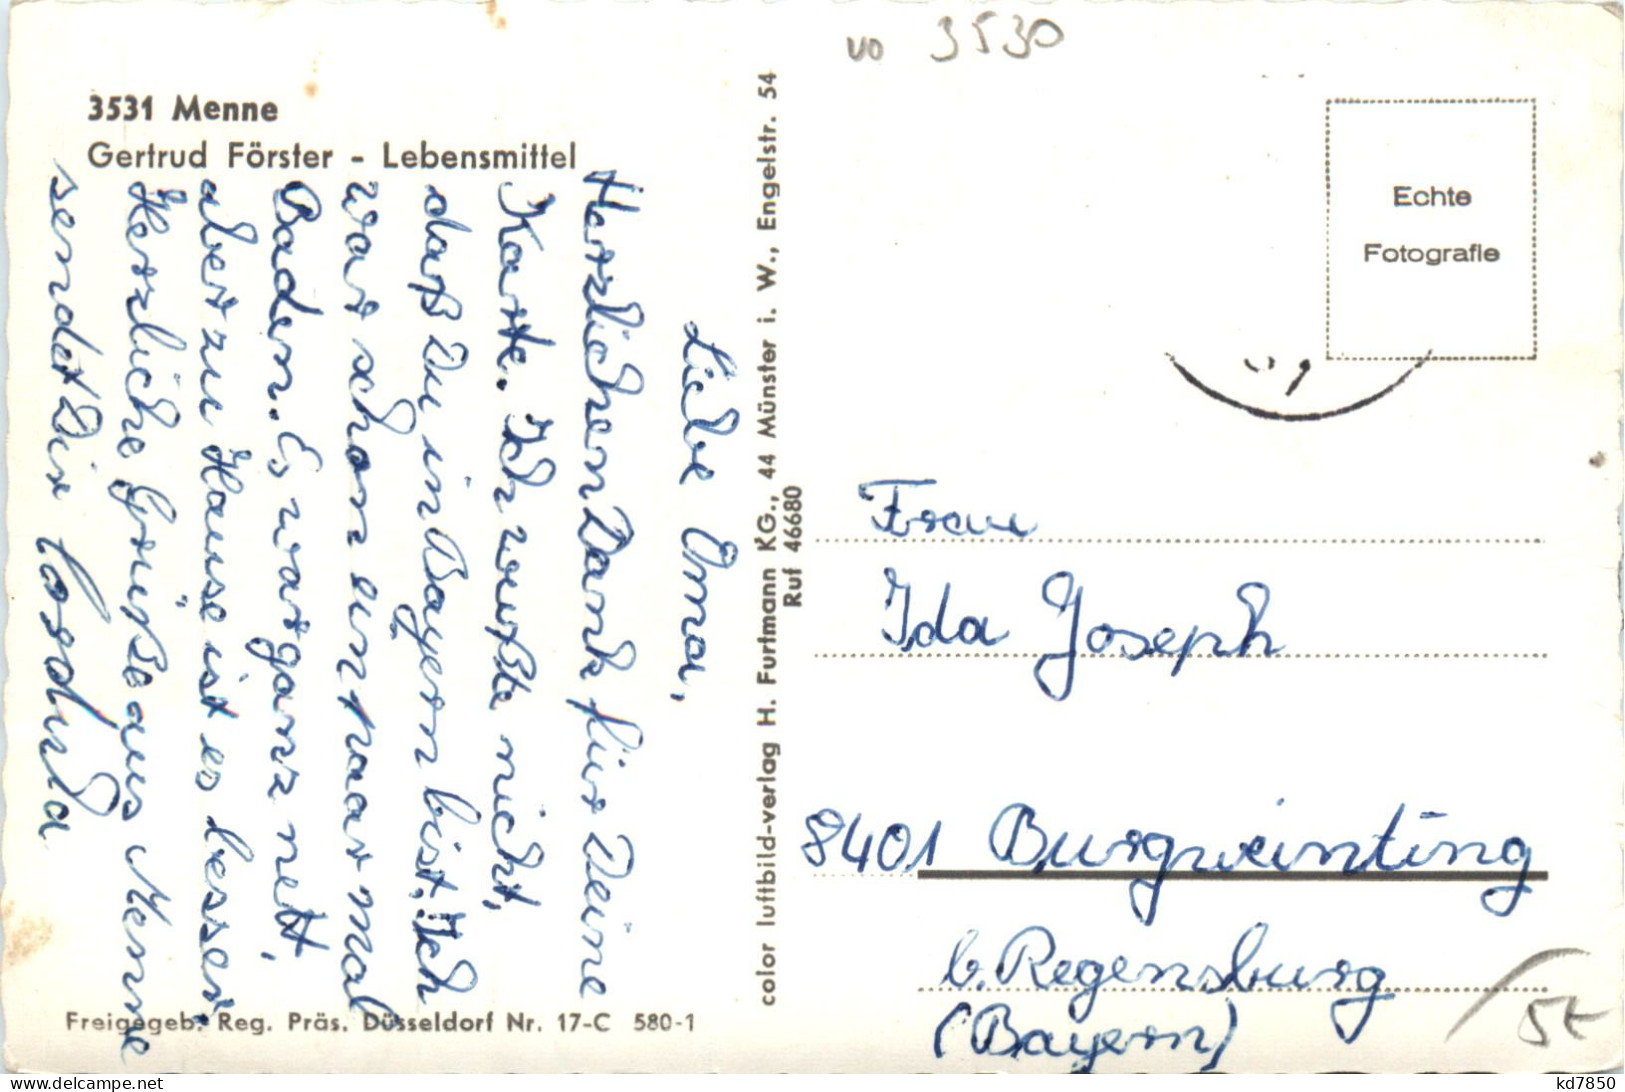 vo 3530
3531 Menne
Gertrud Förster - Lebensmittel
Liebe Oma,
Herzlichen Dank für Deine
Karte. Ich wußte nicht,
daß Du in Bayern bist. Ich
war schon ein paar mal
Baden. Es war ganz nett,
aber zu Hause ist es besser.
Herzliche Grüße aus Menne
sendet Dir Cordula
Freigegeb. Reg. Präs. Düsseldorf Nr. 17-C 580-1
color luftbild-verlag H. Furtmann KG., 44 Münster i. W., Engelstr. 54
Ruf 46680
Echte
Fotografie
Frau
Ida Joseph
8401 Burgweinting
b. Regensburg
(Bayern)
kd7850